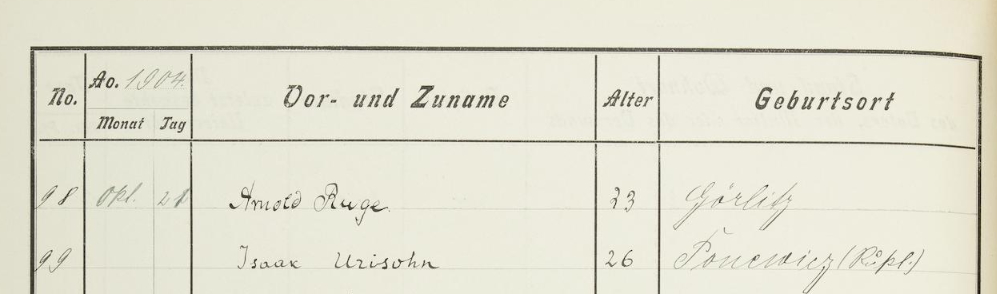 No. Ao. 1904. Vor- und Zuname Alter Geburtsort
Monat Tag
98 Okt. 21 Arnold Ruge. 23 Görlitz
99 Isaak Urisohn 26 Ponewiez (Rußl.)